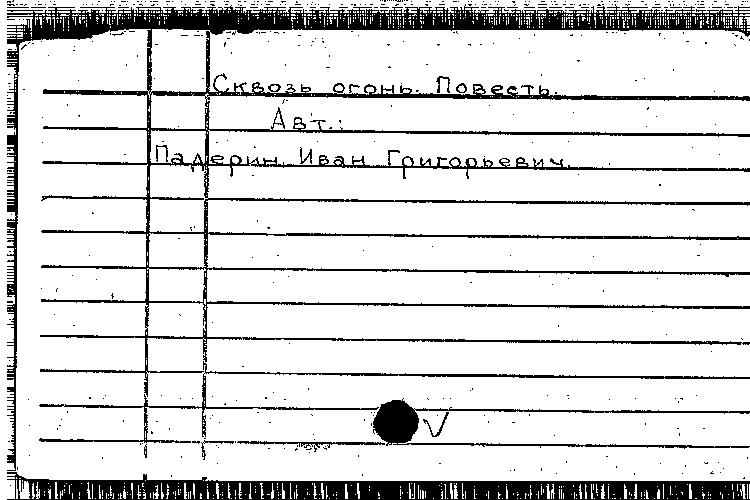 Сквозь огонь. Повесть.
Авт.:
Падерин Иван Григорьевич.